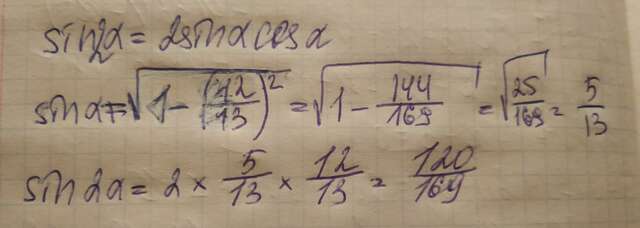 sin2α = 2sinα cosα
sinα = √(1 - (12/13)²) = √(1 - 144/169) = √(25/169) = 5/13
sin 2α = 2 × 5/13 × 12/13 = 120/169